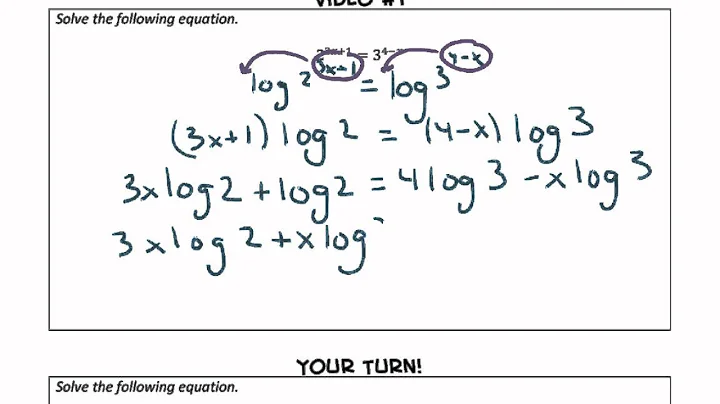 VIDEO #1
Solve the following equation.
= 3⁴⁻
log 2³ˣ⁺¹ = log 3⁴⁻ˣ
(3x+1) log 2 = (4-x) log 3
3x log 2 + log 2 = 4 log 3 - x log 3
3x log 2 + x log
YOUR TURN!
Solve the following equation.